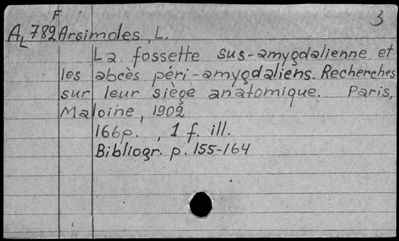 F 3
AL 782 Arsimoles, L.
La fossette sus-amygdalienne et
les abcès péri-amygdaliens. Recherches
sur leur siège anatomique. Paris,
Maloine, 1902
166p. , 1 f. ill.
Bibliogr. p. 155-164